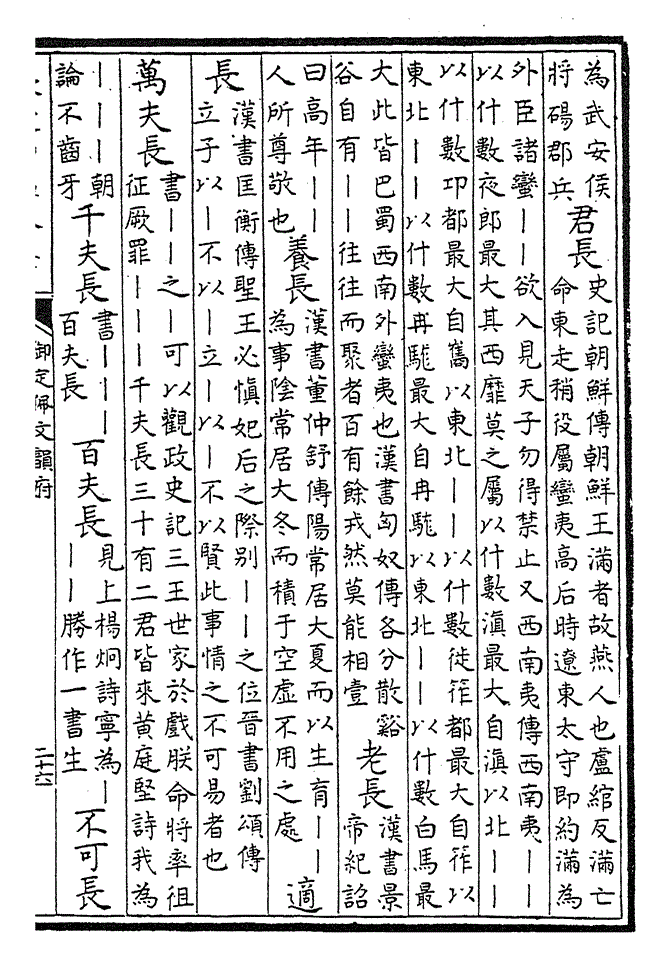 為武安侯
將碭郡兵
君長
史記朝鮮傳朝鮮王滿者故燕人也盧綰反滿亡
命東走稍役屬蠻夷高后時遼東太守即約滿為
外臣諸蠻——欲入見天子勿得禁止又西南夷傳西南夷——
以什數夜郎最大其西靡莫之屬以什數滇最大自滇以北——
以什數卭都最大自巂以東北——以什數徙筰都最大自筰以
東北——以什數冉駹最大自冉駹以東北——以什數白馬最
大此皆巴蜀西南外蠻夷也漢書匈奴傳各分散谿
谷自有——往往而聚者百有餘戎然莫能相壹
老長
漢書景
帝紀詔
曰高年——
人所尊敬也
養長
漢書董仲舒傳陽常居大夏而以生育——
為事陰常居大冬而積于空虛不用之處
適
長
漢書匡衡傳聖王必慎妃后之際別——之位晉書劉頌傳
立子以—不以—立—以—不以賢此事情之不可易者也
萬夫長
書——之—可以觀政史記三王世家於戲朕命將率徂
征厥罪———千夫長三十有二君皆來黄庭堅詩我為
———朝
論不齒牙
千夫長
書———
百夫長
百夫長
見上楊炯詩寧為—
——勝作一書生
不可長
御定佩文韻府
二十六